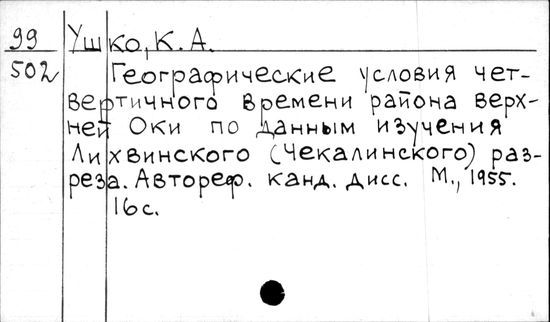 99 Ушко, К. А.
502 Географические условия чет-
вертичного времени района верх-
ней Оки по данным изучения
Лихвинского (Чекалинского) раз-
реза. Автореф. канд. дисс. М., 1955.
16 с.